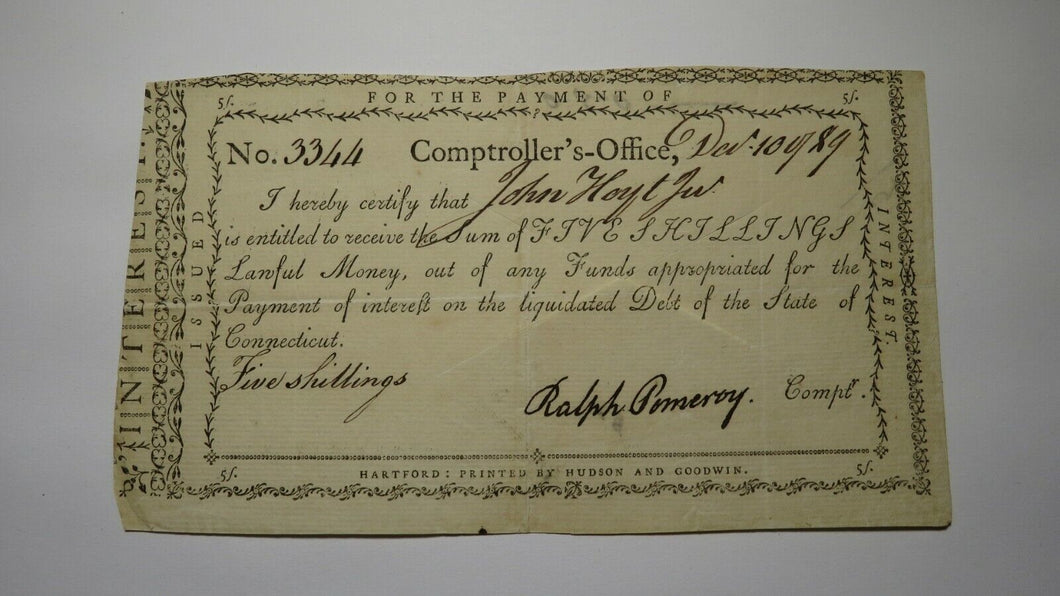 5/. FOR THE PAYMENT OF 5/.
No. 3344 Comptroller's-Office, Dec.r 10 1789
I hereby certify that John Hoyt Jur.
is entitled to receive the Sum of FIVE SHILLINGS
Lawful Money, out of any Funds appropriated for the
Payment of intereſt on the liquidated Debt of the State of
Connecticut.
Five shillings
Ralph Pomeroy. Comptr.
5/. HARTFORD: PRINTED BY HUDSON AND GOODWIN. 5/.
ISSUED
INTEREST.
INTEREST.